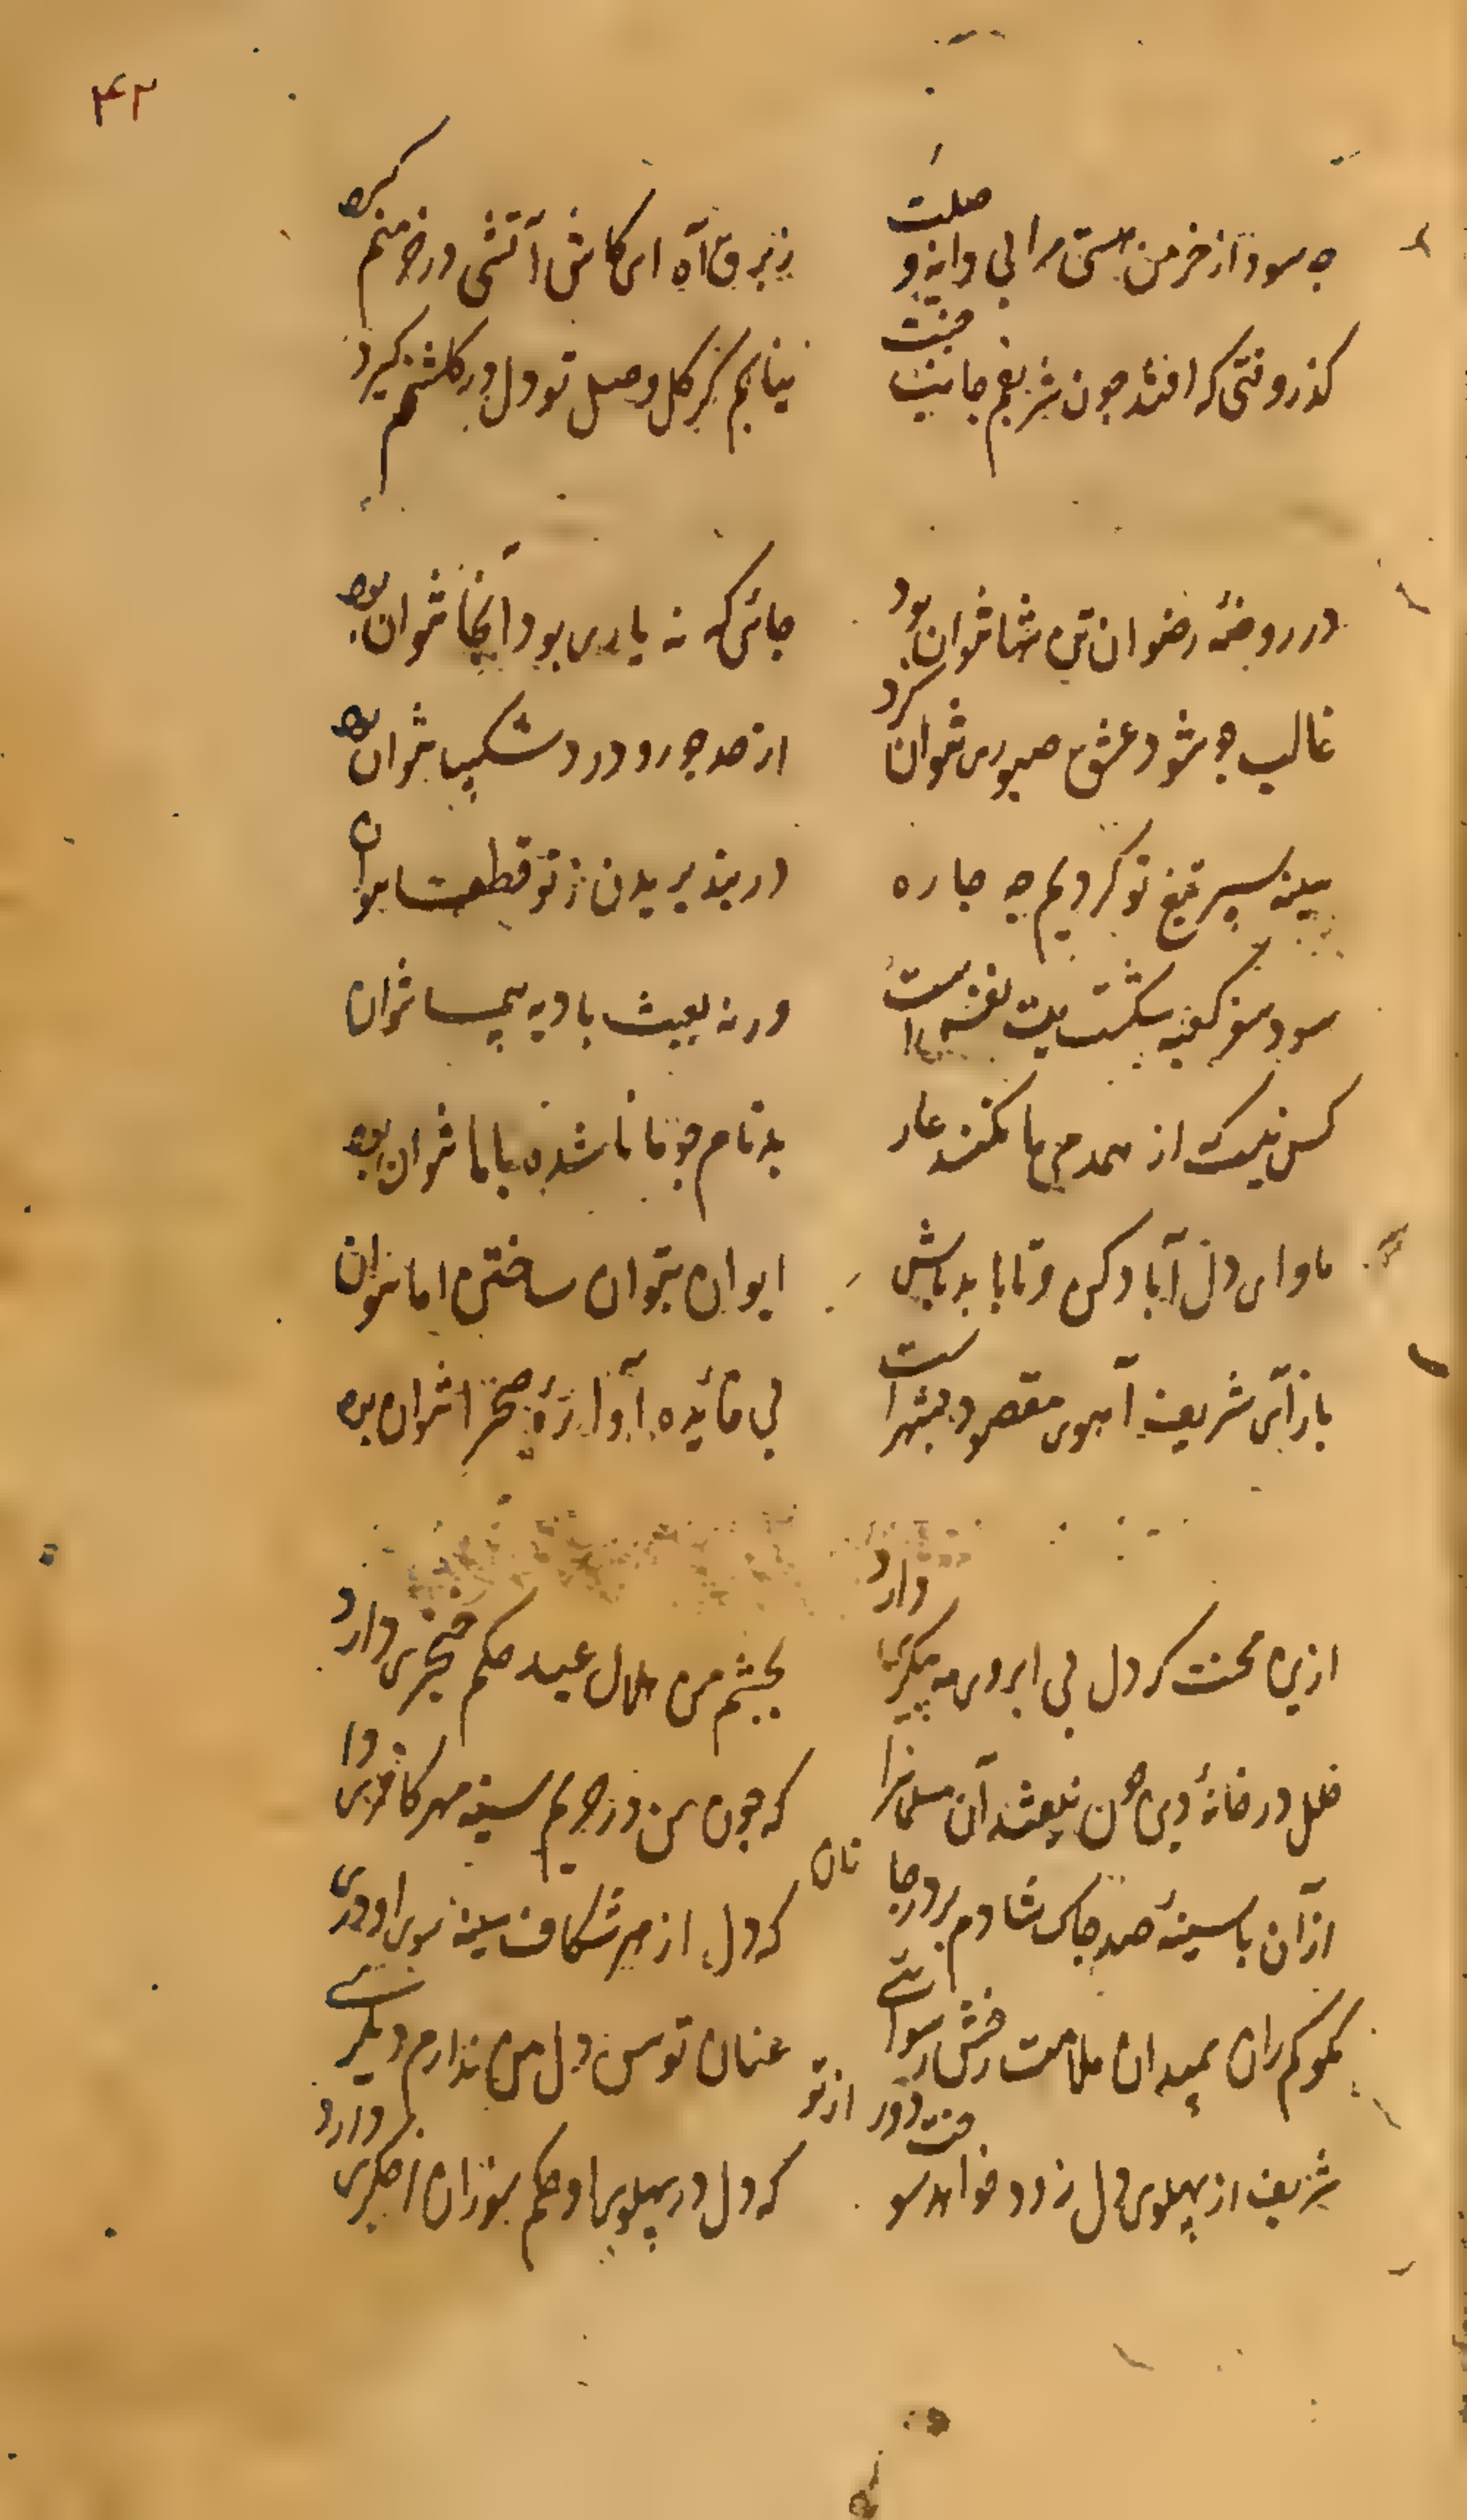 ۴۲
چه سود از خرمن هستی مرا بی دانهٔ وصلت
ز برق آه ای کاش آتشی در خرمنم گیرد
گذر وقتی که افتد چون شریفم جانب
نیابم گر گل وصل تو دل در گلشنم گیرد
در روضهٔ رضوان تن تنها نتوان بود
جائی که نه یاری بود آنجا نتوان بود
غالب چو شود عشق صبوری نتوان کرد
از صد چو رود درد شکیبا نتوان بود
سینه سپر تیغ تو کردیم چه چاره
در بند بریدن ز تو قطعا نتوان
سود سفر کعبه
ورنه بعبث بادیه پیما نتوان
کس نیست از همدمی ما نکند عار
بدنام چو ما ناشده با ما نتوان بود
ماوای دل آباد کن و تا بابد باش
ایوان بتوان ساختن اما نتوان
بازآی شریف آهوی مقصود بشهر است
بی فائده آوارهٔ صحرا نتوان بود
ازین محنت که دل بی ابروی مه پیکری دارد
بچشم من هلال عید حکم خنجری دارد
خلل در خانهٔ دین چون نیفتد آن مسلمانرا
که چون من در حریم سینه مهر کافری دارد
از آن با سینهٔ صد چاک شادم بر در جانان
که دل از هر شکاف سینه سوی او دری
نکویم ران بمیدان ملامت رخش رسوائی
عنان توسن دل من ندارم دیگری دارد
شریف از پهلوی دل زود خواهد سوخت دور از تو
که دل در پهلوی او حکم سوزان اخگری دارد